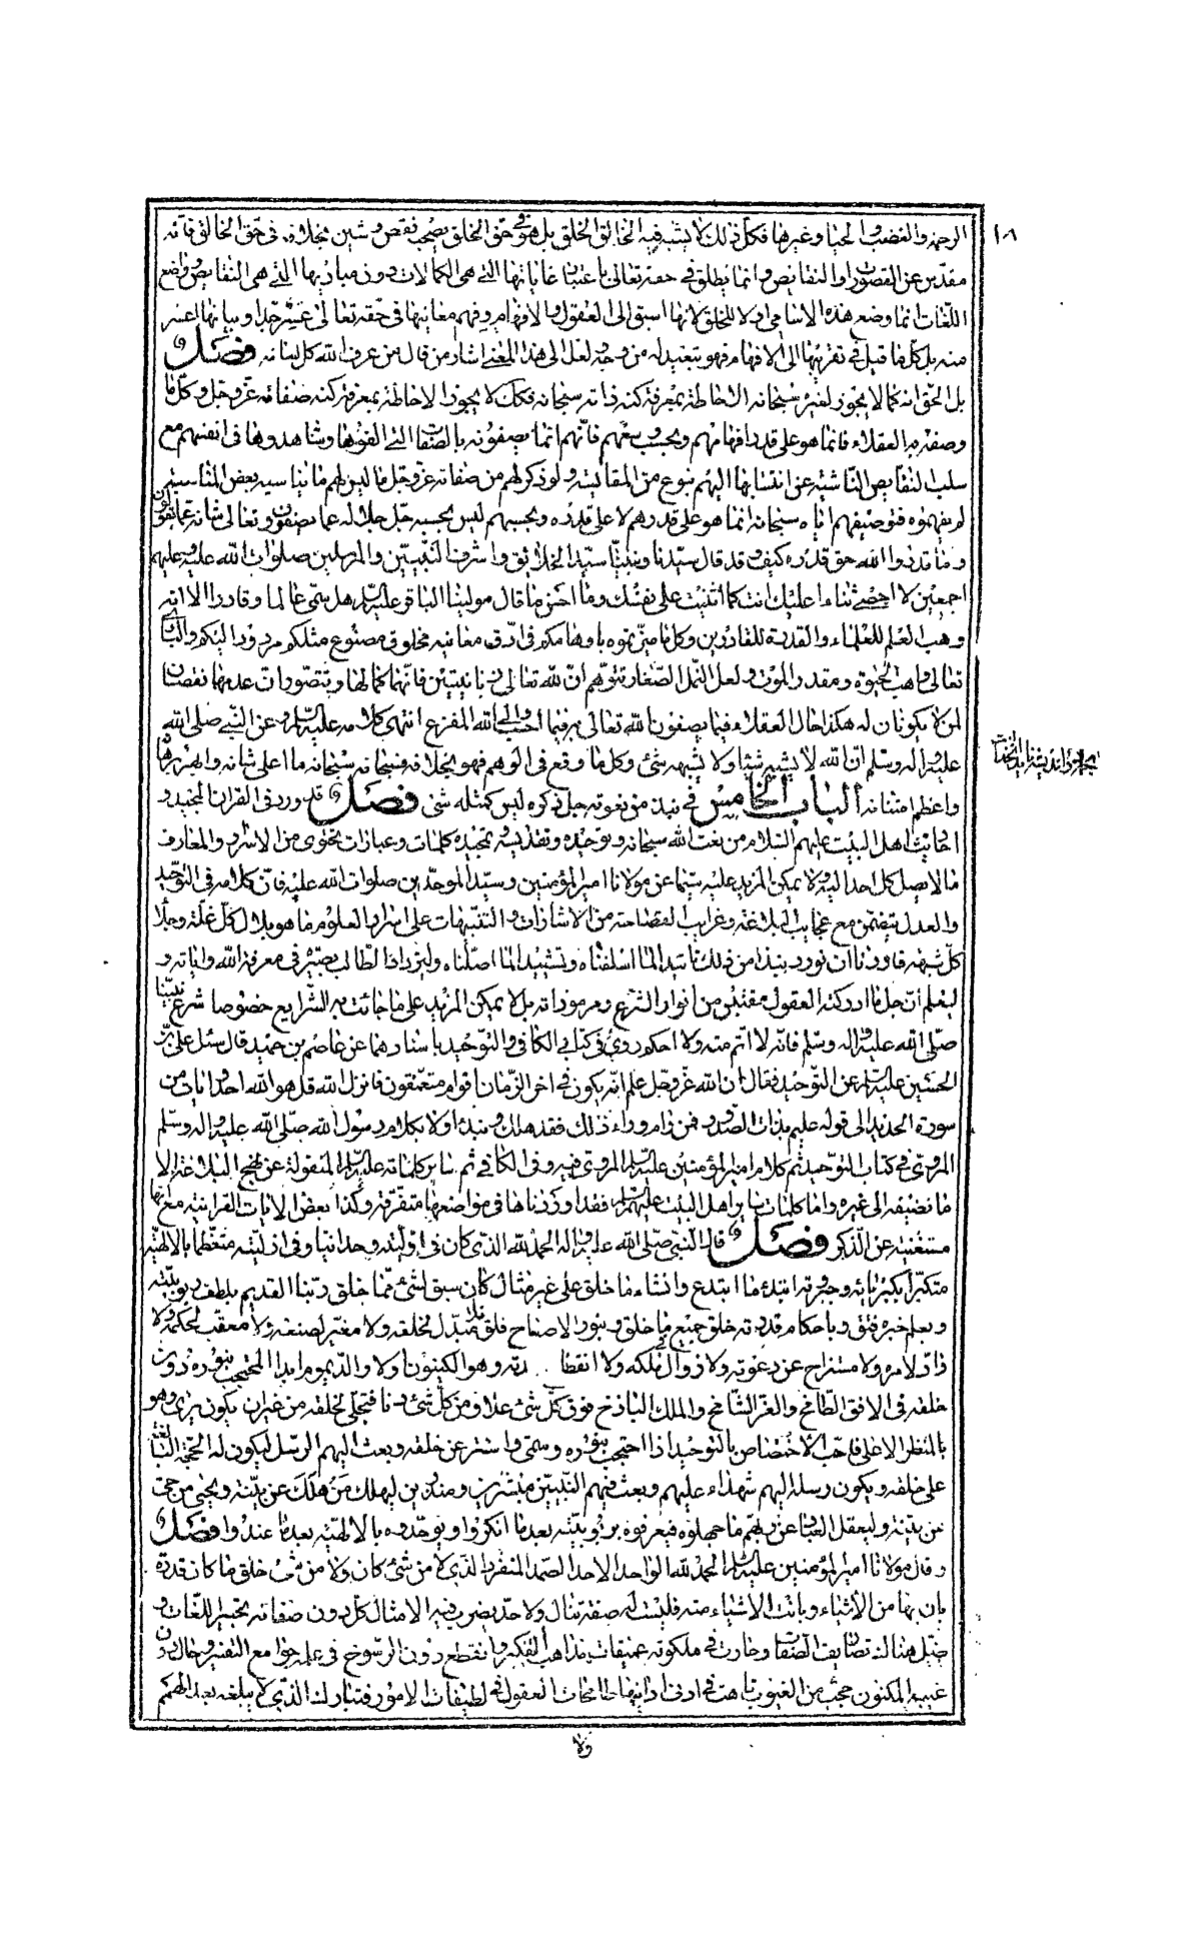 ١٨
الرحمة والغضب والحيا وغيرها فكل ذلك لا يشبه فيه الخالق الخلق بل هو في حق الخلق يصحبه نقص وشين بخلافه في حق الخالق فانه
مقدس عن القصورات والنقايص وانما يطلق في حقه تعالى باعتبار غاياتها التي هي الكمالات دون مباديها التي هي النقايص وواضع
اللغات انما وضع هذه الاسامي اولا للخلق لانها اسبق الى العقول والافهام وفهم معانيها في حقه تعالى عسر جدا وبيانها اعسر
منه بل كل ما قيل في تقريبها الى الافهام فهو تبعيد له من وجه ولعل الى هذا المعنى اشار من قال من عرف الله كل لسانه فصل
بل الحق انه كما لا يجوز لغيره سبحانه الاحاطة بمعرفة كنه ذاته سبحانه فكك لا يجوز الاحاطة بمعرفة كنه صفاته عز وجل وكل ما
وصفه به العقلاء فانما هو على قدر افهامهم وبحسب وسعهم فانهم انما يصفونه بالصفات التي الفوها وشاهدوها في انفسهم مع
سلب النقايص الناشية عن انتسابها اليهم بنوع من المقايسة ولو ذكر لهم من صفاته عز وجل ما ليس لهم ما يناسبه بعض المناسبة
لم يفهموه فتوصيفهم اياه سبحانه انما هو على قدرهم لا على قدره وبحسبهم ليس بحسبه جل جلاله عما يصفون وتعالى شانه عما يقولون
وما قدروا الله حق قدره كيف وقد قال سيدنا ونبينا سيد الخلايق واشرف النبيين والمرسلين صلوات الله عليه وعليهم
اجمعين لا احصي ثناء عليك انت كما اثنيت على نفسك وما احسن ما قال مولينا الباقر عليه السلام هل سمي عالما وقادرا الا انه
وهب العلم للعلماء والقدرة للقادرين وكل ما ميزتموه باوهامكم في ادق معانيه مخلوق مصنوع مثلكم مردود اليكم والباري
تعالى واهب الحيوة ومقدر الموت ولعل النمل الصغار تتوهم ان لله تعالى زبانيتين فانهما كمالها وتتصور ان عدمهما نقصان
لمن لا يكونان له هكذا حال العقلاء فيما يصفون الله تعالى به فيما احسب والى الله المفزع انتهى كلامه عليه السلام وعن النبي صلى الله
عليه واله وسلم ان الله لا يشبه شيئا ولا يشبهه شئ وكل ما وقع في الوهم فهو بخلافه فسبحانه سبحانه ما اعلى شانه وابهر برهانه
واعظم امتنانه الباب الخامس في نبذ من نعوته جل ذكره ليس كمثله شئ فصل قد ورد في القران المجيد و
احاديث اهل البيت عليهم السلام من نعت الله سبحانه وتوحيده وتقديسه وتمجيده كلمات وعبارات تحتوي من الاسرار والمعارف
ما لا يصل كل احد اليه ولا يمكن المزيد عليه سيما عن مولانا امير المؤمنين وسيد الموحدين صلوات الله عليه فان كلامه في التوحيد
والعدل يتضمن مع عجايب البلاغة وغرايب الفصاحة من الاشارات والتنبيهات على اسرار العلوم ما هو بلال كل غلة وجلا
كل شبهة فاردنا ان نورد نبذا من ذلك تاييدا لما اسلفناه وتشييدا لما اصلناه وليزداد الطالب بصيرة في معرفة الله واياته و
ليعلم ان جل ما ادركته العقول مقتبس من انوار الشرع ومرموزاته بل لا يمكن المزيد على ما جائت به الشرايع خصوصا شرع نبينا
صلى الله عليه واله وسلم فانه لا اتم منه ولا احكم روى في كتابي الكافي والتوحيد باسنادهما عن عاصم بن حميد قال سئل علي بن
الحسين عليه السلام عن التوحيد فقال ان الله عز وجل علم انه يكون في اخر الزمان اقوام متعمقون فانزل الله قل هو الله احد وايات من
سورة الحديد الى قوله عليم بذات الصدور فمن رام وراء ذلك فقد هلك ونبدء اولا بكلام رسول الله صلى الله عليه واله وسلم
المروي في كتاب التوحيد ثم كلام امير المؤمنين عليه السلام المروي فيه وفي الكافي ثم ساير كلماته عليه السلام المنقولة عن نهج البلاغة الا
ما نضيفه الى غيره واما كلمات ساير اهل البيت عليهم السلام فقد اوردناها في مواضعها متفرقة وكذا بعض الايات القرانية مع انها
مستغنية عن الذكر فصل قال النبي صلى الله عليه واله الحمد لله الذي كان في اوليته وحدانيا وفي ازليته متعظما بالالهية
متكبرا بكبريائه وجبروته ابتدء ما ابتدع وانشاء ما خلق على غير مثال كان سبق لشئ مما خلق ربنا القديم بلطف ربوبيته
وبعلم خبره فتق وباحكام قدرته خلق جميع ما خلق وبنور الاصباح فلق فلا مبدل لخلقه ولا مغير لصنعه ولا معقب لحكمه ولا
راد لامره ولا مستراح عن دعوته ولا زوال لملكه ولا انقطاع لمدته وهو الكينون اولا والديموم ابدا المحتجب بنوره دون
خلقه في الافق الطامح والعز الشامخ والملك الباذخ فوق كل شئ علا ومن كل شئ دنا فتجلى لخلقه من غير ان يكون يرى وهو
بالمنظر الاعلى فاحب الاختصاص بالتوحيد اذا احتجب بنوره وسمى واستتر عن خلقه وبعث اليهم الرسل ليكون له الحجة البالغة
على خلقه ويكون رسله اليهم شهداء عليهم وبعث فيهم النبيين مبشرين ومنذرين ليهلك من هلك عن بينة ويحيى من حي
عن بينة وليعقل العباد عن ربهم ما جهلوه فيعرفوه بربوبيته بعد ما انكروا ويوحدوه بالالهية بعد ما عندوا فصل
وقال مولانا امير المؤمنين عليه السلام الحمد لله الواحد الاحد الصمد المنفرد الذي لا من شئ كان ولا من شئ خلق ما كان قدرة
بان بها من الاشياء وبانت الاشياء منه فليست له صفة تنال ولا حد يضرب فيه الامثال كل دون صفاته تحبير اللغات و
ضل هنالك تصاريف الصفات وحارت في ملكوته عميقات مذاهب التفكير وانقطع دون الرسوخ في علمه جوامع التفسير وحال دون
غيبه المكنون حجب من الغيوب تاهت في ادنى ادانيها طامحات العقول في لطيفات الامور فتبارك الذي لا يبلغه بعد الهمم
ولا